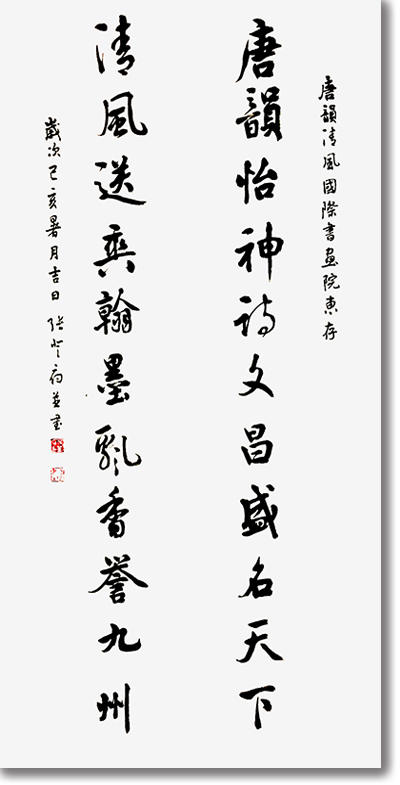 唐韻清風國際書畫院惠存
唐韻怡神詩文昌盛名天下
清風送爽翰墨飄香譽九州
歲次己亥暑月吉日張並書